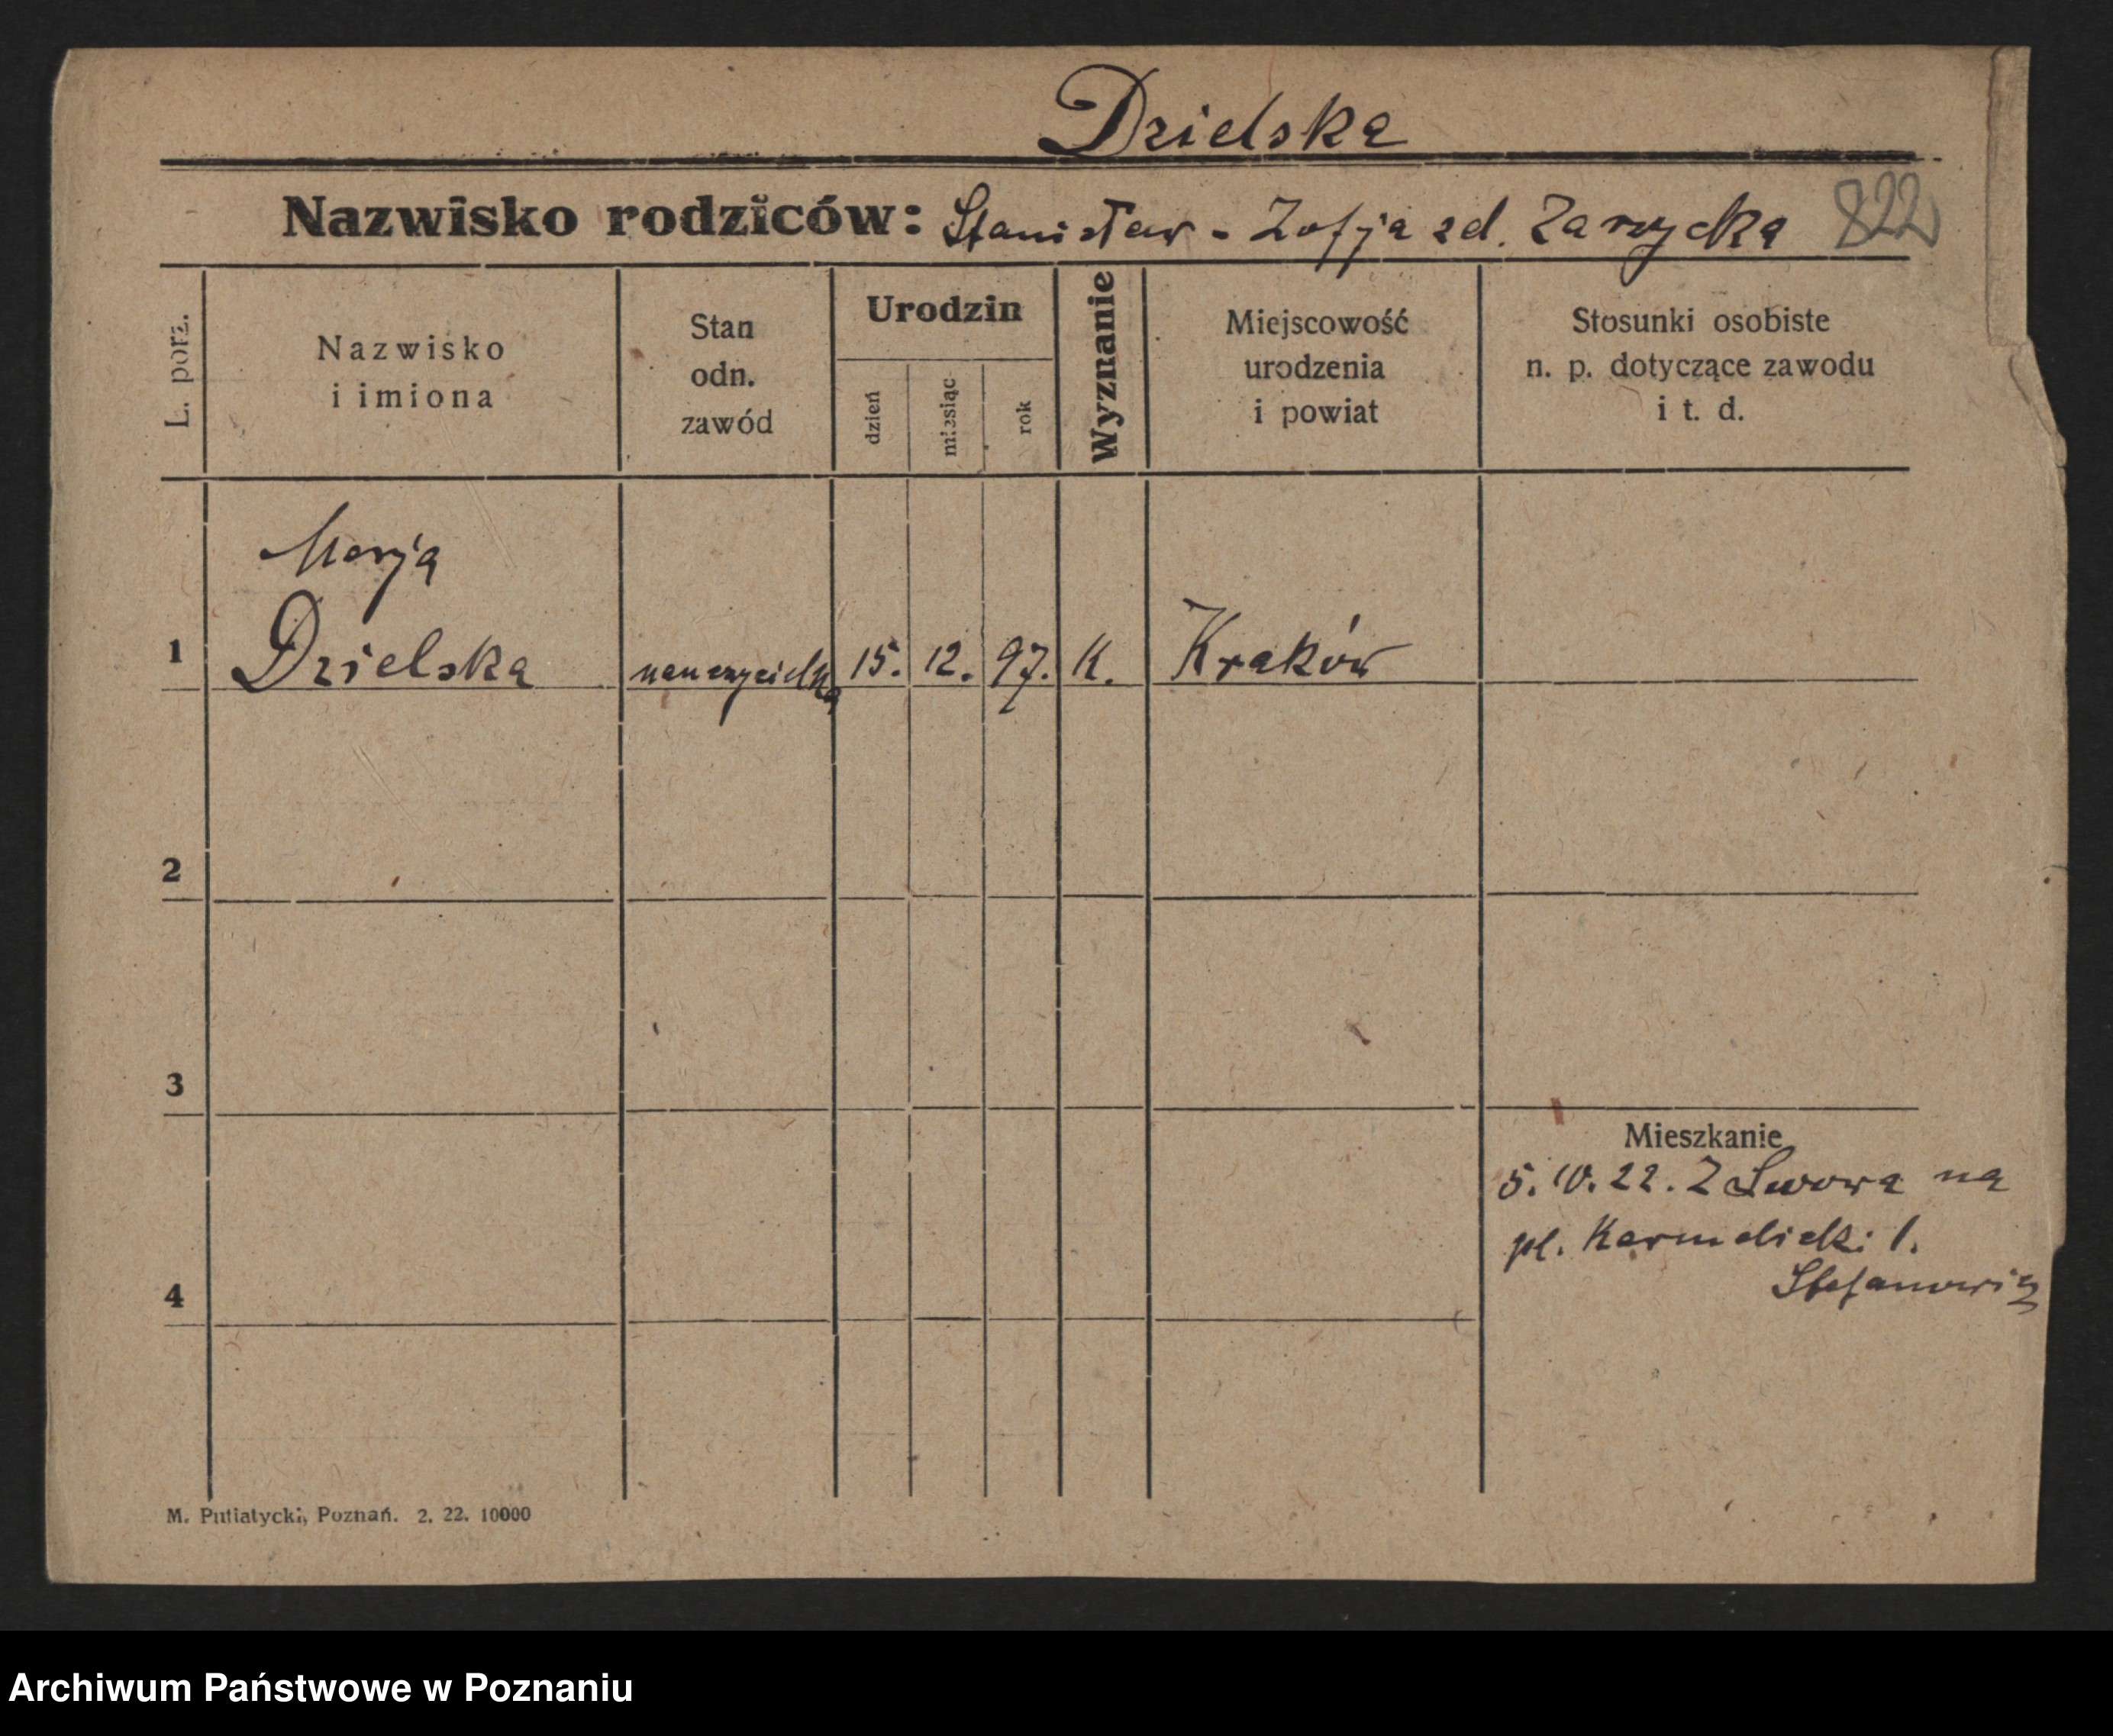 Dzielska
Nazwisko rodziców: Stanisław - Zofja zd. Zarzycka 822
L. porz.
Nazwisko
i imiona
Stan
odn.
zawód
Urodzin
dzień
miesiąc
rok
Wyznanie
Miejscowość
urodzenia
i powiat
Stosunki osobiste
n. p. dotyczące zawodu
i t. d.
Marja
1 Dzielska nauczycielka 15. 12. 97. K. Kraków
2
3
Mieszkanie
5. 10. 22. Z Lwowa na
pl. Karmelicki 1.
Stefanowicz
4
M. Putiatycki, Poznań. 2. 22. 10000
Archiwum Państwowe w Poznaniu